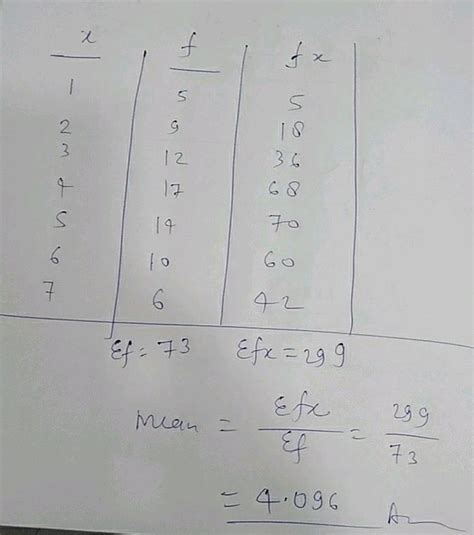 x f fx
1 5 5
2 9 18
3 12 36
4 17 68
5 14 70
6 10 60
7 6 42
Σf = 73 Σfx = 299
Mean = Σfx / Σf = 299 / 73
= 4.096 An